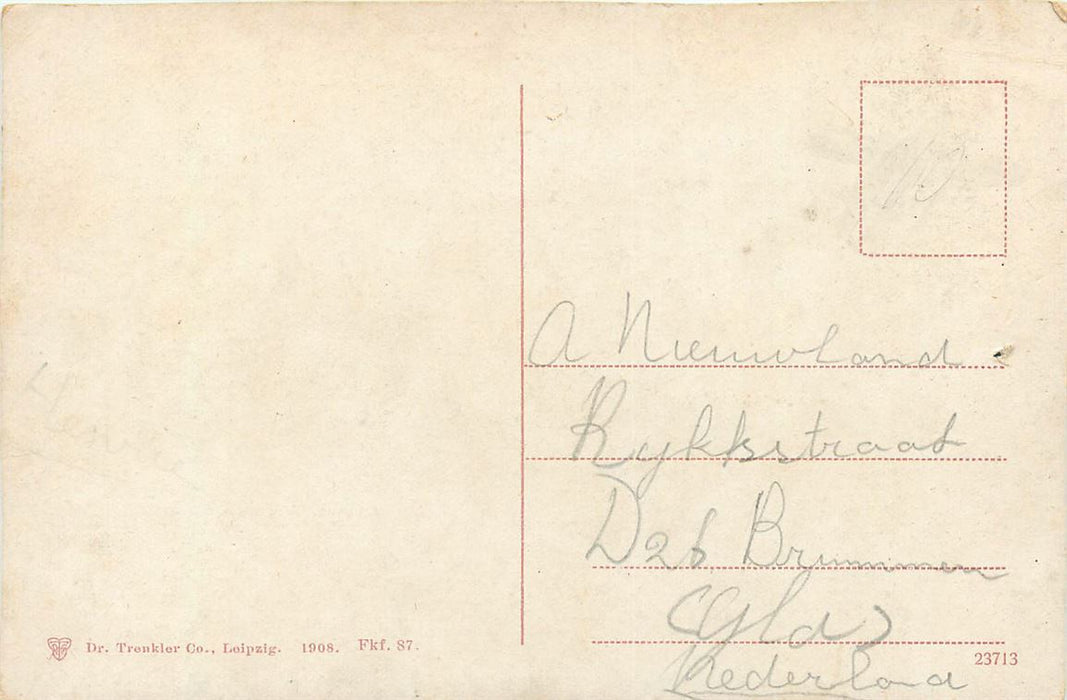 A Nieuwland
Rykkstraat
D26 Brummen
(Gld)
Nederland
Dr. Trenkler Co., Leipzig. 1908. Fkf. 87.
23713